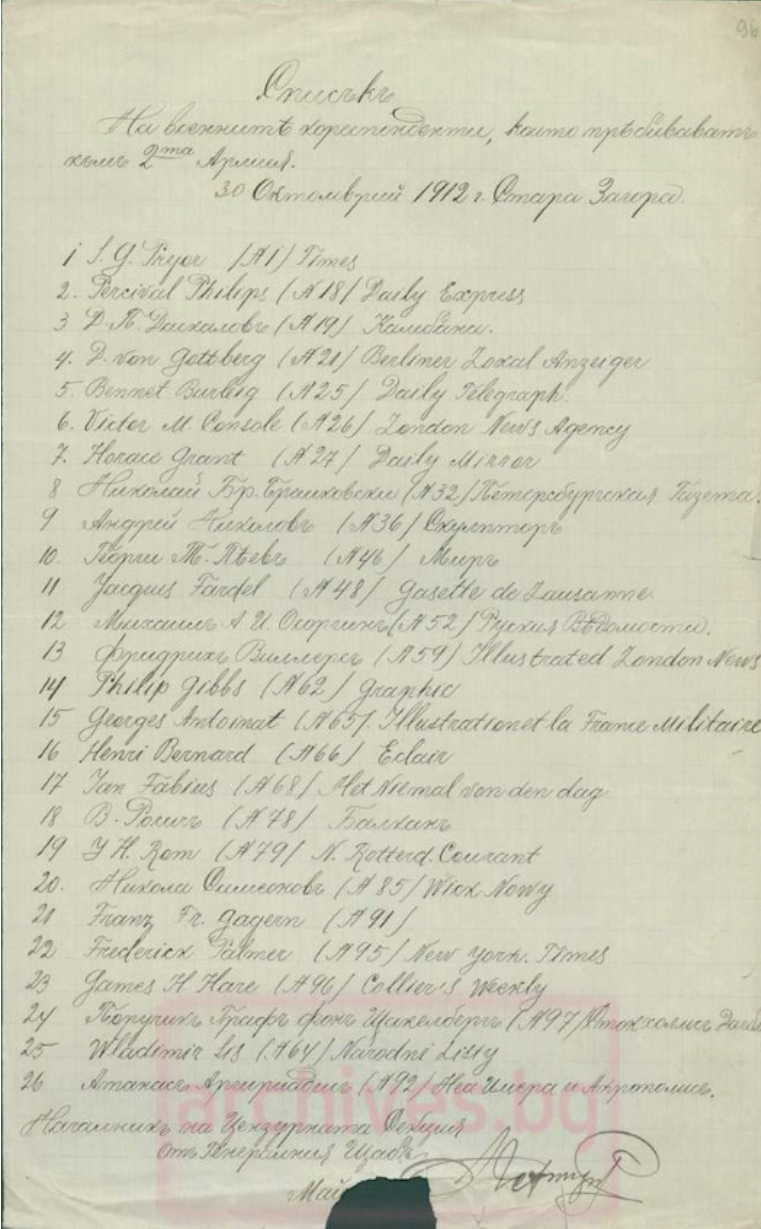 96
Списъкъ
На военнитѣ кореспонденти, които прѣбиваватъ
къмъ 2та Армия.
30 Октомврий 1912 г. Стара Загора.
1 S. G. Pryor (№1) Times
2. Percival Philips (№18) Daily Express
3 Д. П. Даскаловъ (№19) Камбана.
4. D. von Gottberg (№21) Berliner Lokal Anzeiger
5. Bennet Burleig (№25) Daily Telegraph.
6. Victor M. Console (№26) London News Agency
7. Horace Grant (№27) Daily Mirror
8 Николай Бр. Брашковски (№32) Петерсбургская Газета.
9 Андрей Николовъ (№36) Скулпторъ
10. Георги Т. Пѣевъ (№46) Миръ
11 Jacques Fardel (№48) Gasette de Lausanne
12 Михаилъ А И. Осоргинъ (№52) Руския Вѣдомости.
13 Фридрихъ Виллерсъ (№59) Illustrated London News
14 Philip Gibbs (№62) Graphic
15 Georges Antoinat (№65) Illustration et la France Militaire
16 Henri Bernard (№66) Eclair
17 Jan Fabius (№68) Het Niemal von den dag
18 В. Розичъ (№78) Балканъ
19 J H. Rom (№79) N. Rotterd. Courant
20. Никола Симеоновъ (№85) Wiek Nowy
21 Franz Fr. Gagern (№91)
22 Frederick Palmer (№95) New York. Times
23 James H Hare (№96) Collier's Weekly
24 Поручикъ Графъ фонъ Щакелбергъ (№97) Стокхолмсъ
25 Wladimir Sis (№64) Národní Listy
26 Атанасъ Аргириадисъ (№92) Неа Имера и Акрополисъ.
Началникъ на Цензурната Секция
отъ Генералния Щабъ
Май
archives.bg